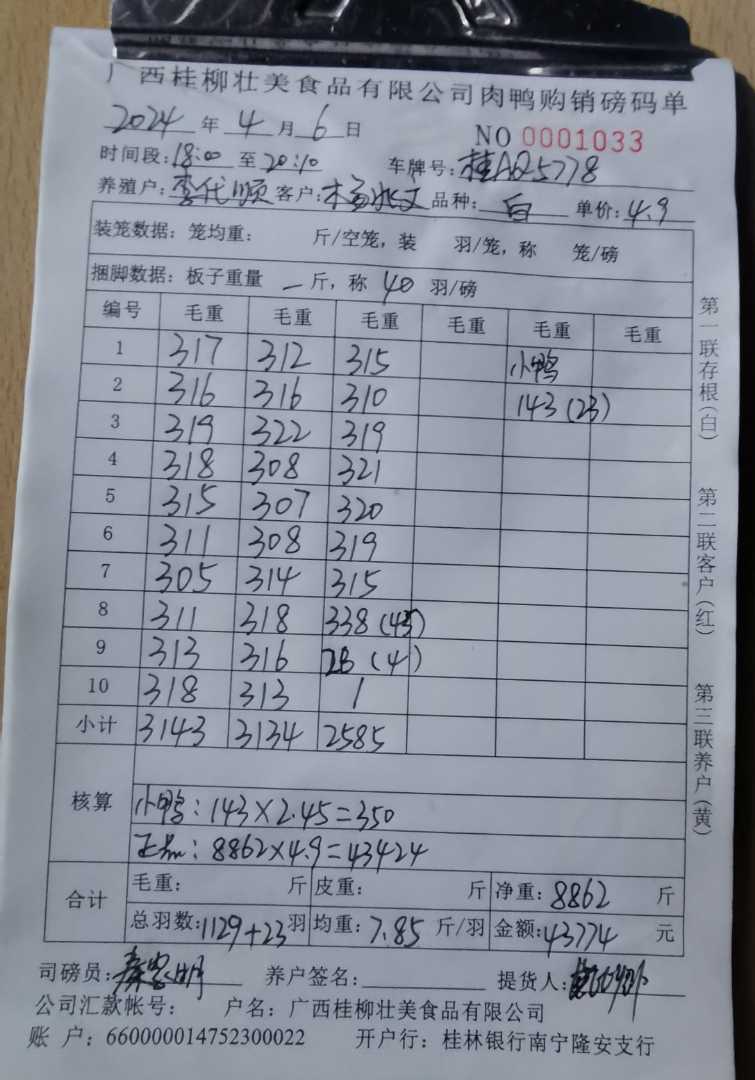 广西桂柳壮美食品有限公司肉鸭购销磅码单
2024 年 4 月 6 日 NO 0001033
时间段: 18:00 至 20:10 车牌号: 桂AQ5778
养殖户: 李代顺 客户: 杨 品种: 白 单价: 4.9
装笼数据: 笼均重: 斤/空笼, 装 羽/笼, 称 笼/磅
捆脚数据: 板子重量 — 斤, 称 40 羽/磅
编号 毛重 毛重 毛重 毛重 毛重 毛重
1 317 312 315 小鸭
2 316 316 310 143 (23)
3 319 322 319
4 318 308 321
5 315 307 320
6 311 308 319
7 305 314 315
8 311 318 338 (43)
9 313 316 28 (4)
10 318 313 /
小计 3143 3134 2585
核算
小鸭: 143×2.45=350
正品: 8862×4.9=43424
合计
毛重: 斤 皮重: 斤 净重: 8862 斤
总羽数: 1129+23 羽 均重: 7.85 斤/羽 金额: 43774 元
司磅员: 养户签名: 提货人:
公司汇款帐号: 户名: 广西桂柳壮美食品有限公司
账 户: 660000014752300022 开户行: 桂林银行南宁隆安支行
第一联存根(白) 第二联客户(红) 第三联养户(黄)